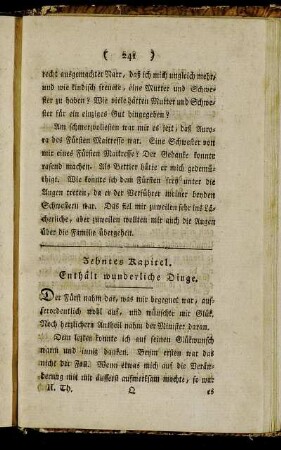 ( 241 )
recht ausgemachter Narr, daß ich mich ungleich mehr,
und wie kindisch freute, eine Mutter und Schwe-
ster zu haben? Wie viele hätten Mutter und Schwe-
ster für ein einziges Gut hingegeben?
Am schmerzlichsten war mir es jezt, daß Auro-
ra des Fürsten Maitresse war. Eine Schwester von
mir eines Fürsten Maitresse? Der Gedanke konnte
rasend machen. Als Bettler hätte er mich gedemü-
thigt. Wie konnte ich dem Fürsten jezt unter die
Augen treten, da er der Verführer meiner beyden
Schwestern war. Das fiel mir zuweilen sehr ins Lä-
cherliche, aber zuweilen wollten mir auch die Augen
über die Familie übergehen.
Zehntes Kapitel.
Enthält wunderliche Dinge.
Der Fürst nahm das, was mir begegnet war, auf-
serordentlich wohl auf, und wünschte mir Glük.
Noch herzlichern Antheil nahm der Minister daran.
Dem lezten konnte ich auf seinen Glükwunsch
warm und innig danken. Beym ersten war das
nicht der Fall. Wenn etwas mich auf die Verän-
derung mit mir äusserst aufmerksam machte, so war
II. Th. Q es